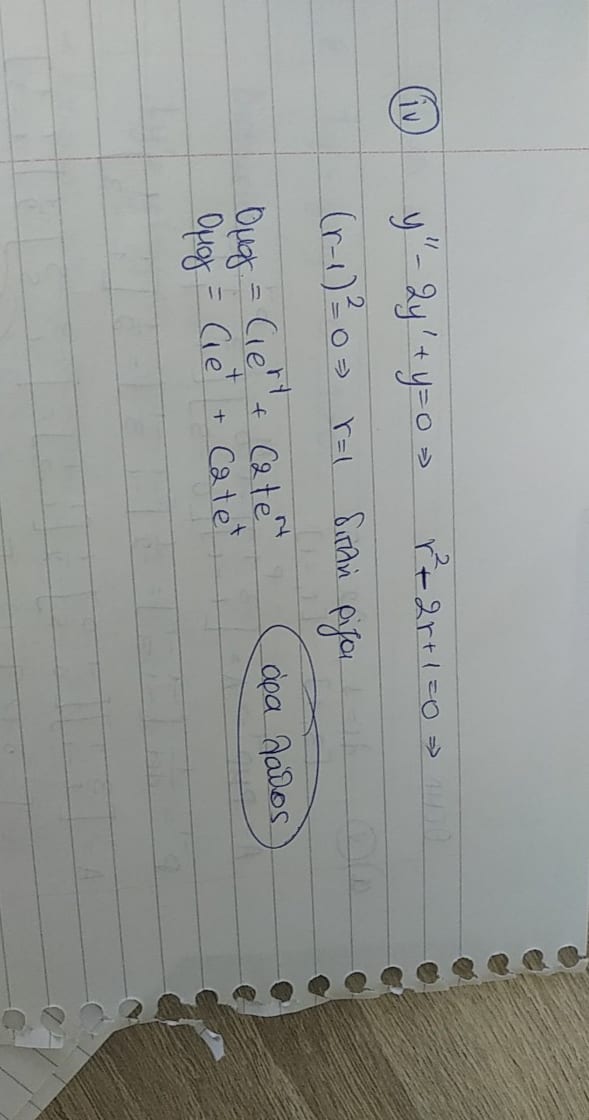 (iv) y'' - 2y' + y = 0 ⇒ r² - 2r + 1 = 0 ⇒
(r-1)² = 0 ⇒ r = 1 διπλή ρίζα
Ομογ = C1e^rt + C2te^rt
Ομογ = C1e^t + C2te^t
άρα λάθος